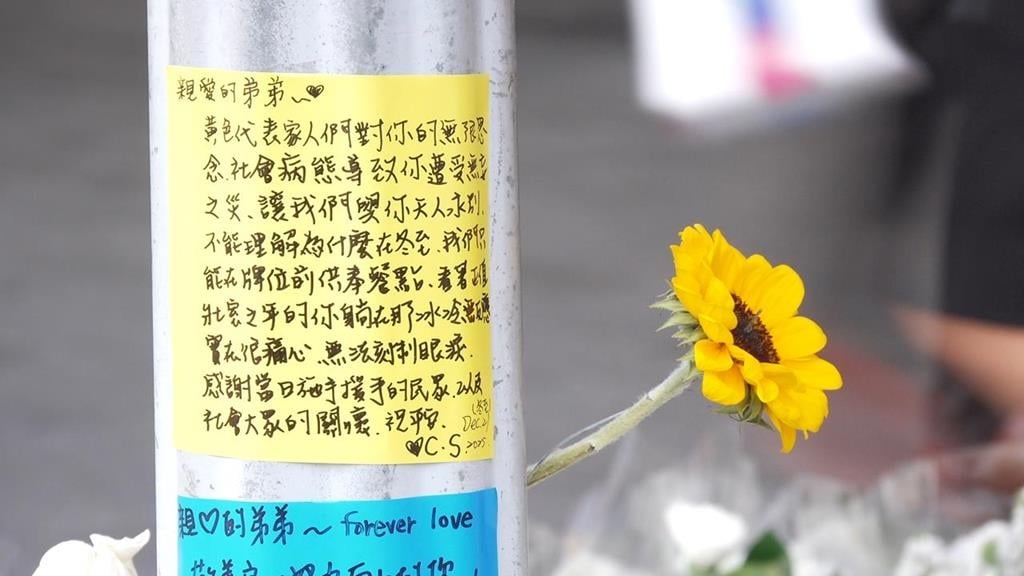 親愛的弟弟~♥
黃色代表家人們對你的無限思
念.社會病態導致你遭受無妄
之災、讓我們與你天人永別.
不能理解為什麼在冬至.我們只
能在牌位前供奉餐點、看著正值
壯家之年的你躺在那冰冷無
實在很痛心.無法刻制眼淚.
感謝當日施手援手的民眾.以及
社會大眾的關懷.祝平安.
(冬至)
Dec.21
♥C.S.2025
親♡的弟弟~forever love